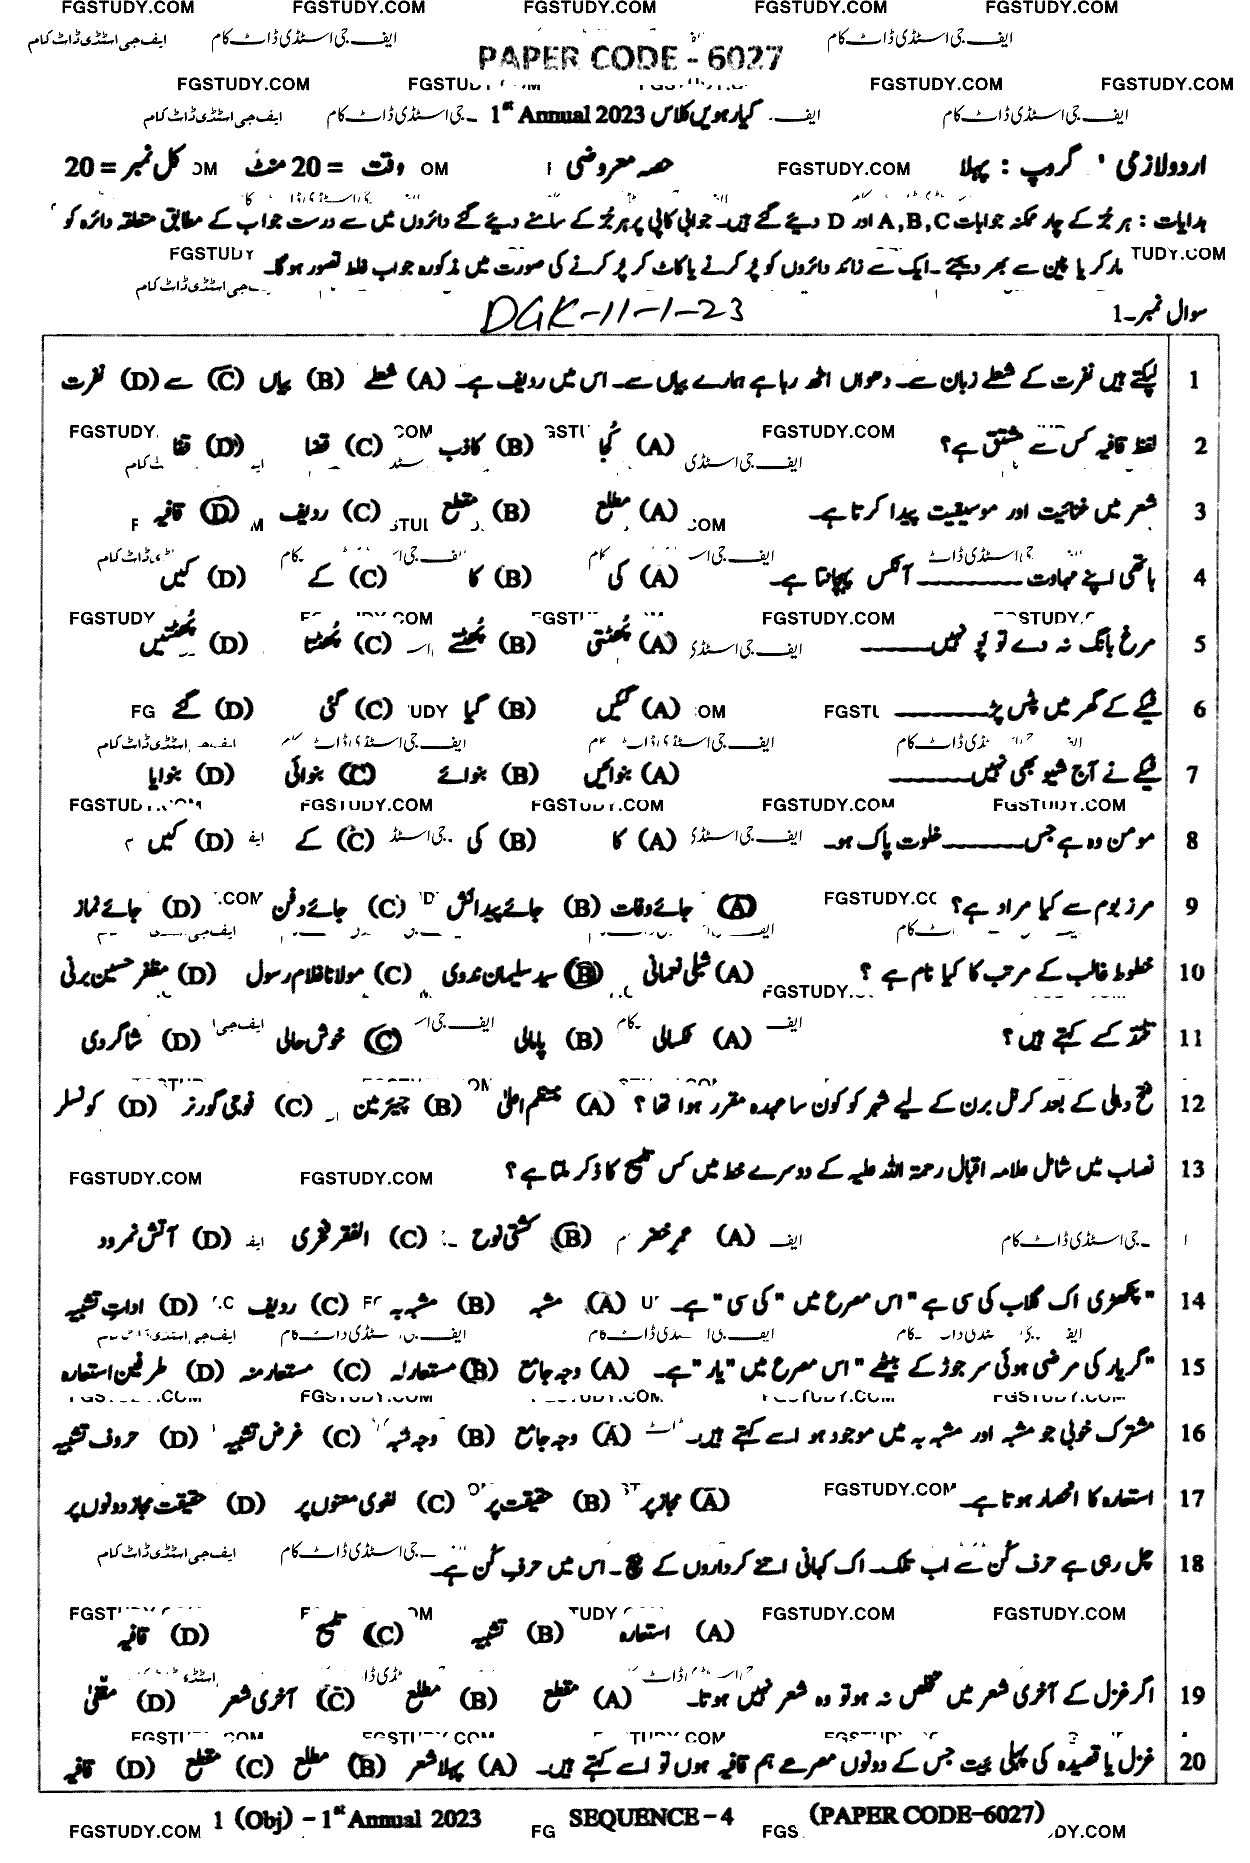 FGSTUDY.COM FGSTUDY.COM FGSTUDY.COM FGSTUDY.COM FGSTUDY.COM
ایف جی اسٹڈی ڈاٹ کام ایف جی اسٹڈی ڈاٹ کام ایف جی اسٹڈی ڈاٹ کام
PAPER CODE - 6027
FGSTUDY.COM FGSTUDY.COM FGSTUDY.COM
گیارہویں کلاس 1st Annual 2023
اردو لازمی گروپ : پہلا حصہ معروضی وقت = 20 منٹ کل نمبر = 20
ہدایات : ہر جُز کے چار ممکنہ جوابات A,B,C اور D دیئے گئے ہیں۔ جوابی کاپی پر ہر جُز کے سامنے دیئے گئے دائروں میں سے درست جواب کے مطابق متعلقہ دائرہ کو
مارکر یا پین سے بھر دیجئے۔ ایک سے زائد دائروں کو پُر کرنے یا کاٹ کر پُر کرنے کی صورت میں مذکورہ جواب غلط تصور ہوگا۔
DGK-11-1-23
سوال نمبر۔1
1 لپکتے ہیں نفرت کے شعلے زبان سے۔ دھواں اٹھ رہا ہے ہمارے یہاں سے۔ اس میں ردیف ہے۔ (A) شعلے (B) یہاں (C) سے (D) نفرت
2 لفظ قافیہ کس سے مشتق ہے؟ (A) (B) کاذب (C) قضا (D) قفا
3 شعر میں غنائیت اور موسیقیت پیدا کرتا ہے۔ (A) مطلع (B) مقطع (C) ردیف (D) قافیہ
4 ہاتھی اپنے مہاوت ـــــــ آنکس پہچانتا ہے۔ (A) کی (B) کا (C) کے (D) کیں
5 مرغ بانگ نہ دے تو پَو نہیں ـــــــ (A) پُھٹتی (B) پُھٹتے (C) پُھٹتا (D) پُھٹتیں
6 ٹیپے کے گھر میں پِٹس پڑ ـــــــ (A) گئیں (B) گیا (C) گئی (D) گئے
7 ٹیپے نے آج شیو بھی نہیں ـــــــ (A) بنوائیں (B) بنوائے (C) بنوائی (D) بنوایا
8 مومن وہ ہے جس ـــــــ خلوت پاک ہو۔ (A) کا (B) کی (C) کے (D) کیں
9 مرزبوم سے کیا مراد ہے؟ (A) جائے وفات (B) جائے پیدائش (C) جائے دفن (D) جائے نماز
10 خطوط غالب کے مرتب کا کیا نام ہے ؟ (A) شبلی نعمانی (B) سید سلیمان ندوی (C) مولانا غلام رسول (D) مظفر حسین برنی
11 تلمّذ کسے کہتے ہیں؟ (A) ٹکسالی (B) پامالی (C) خوش حالی (D) شاگردی
12 فتح دہلی کے بعد کرنل برن کے لیے شہر کو کون سا عہدہ مقرر ہوا تھا ؟ (A) منتظم اعلیٰ (B) چیئرمین (C) فوجی گورنر (D) کونسلر
13 نصاب میں شامل علامہ اقبال رحمۃ اللہ علیہ کے دوسرے خط میں کس تلمیح کا ذکر ملتا ہے؟
(A) عمرِ خضر (B) کشتیِ نوح (C) الفقر فخری (D) آتشِ نمرود
14 "پنکھڑی اک گلاب کی سی ہے" اس مصرع میں "کی سی" ہے۔ (A) مشبہ (B) مشبہ بہ (C) ردیف (D) اداتِ تشبیہ
15 "گر یار کی مرضی ہوئی سر جوڑ کے بیٹھے" اس مصرع میں "یار" ہے۔ (A) وجہ جامع (B) مستعارلہ (C) مستعارمنہ (D) طرفینِ استعارہ
16 مشترک خوبی جو مشبہ اور مشبہ بہ میں موجود ہو اسے کہتے ہیں۔ (A) وجہ جامع (B) وجہ شبہ (C) غرضِ تشبیہ (D) حروفِ تشبیہ
17 استعارہ کا انحصار ہوتا ہے۔ (A) مجاز پر (B) حقیقت پر (C) لغوی معنوں پر (D) حقیقت مجاز دونوں پر
18 چل رہی ہے حرفِ کُن سے اب تلک۔ اک کہانی اتنے کرداروں کے بیچ۔ اس میں حرفِ کُن ہے۔
(A) استعارہ (B) تشبیہ (C) تلمیح (D) قافیہ
19 اگر غزل کے آخری شعر میں تخلص نہ ہو تو وہ شعر نہیں ہوتا۔ (A) مقطع (B) مطلع (C) آخری شعر (D) مقفیٰ
20 غزل یا قصیدہ کی پہلی بیت جس کے دونوں مصرعے ہم قافیہ ہوں تو اسے کہتے ہیں۔ (A) پہلا شعر (B) مطلع (C) مقطع (D) قافیہ
1 (Obj) - 1st Annual 2023 SEQUENCE - 4 (PAPER CODE-6027)
FGSTUDY.COM